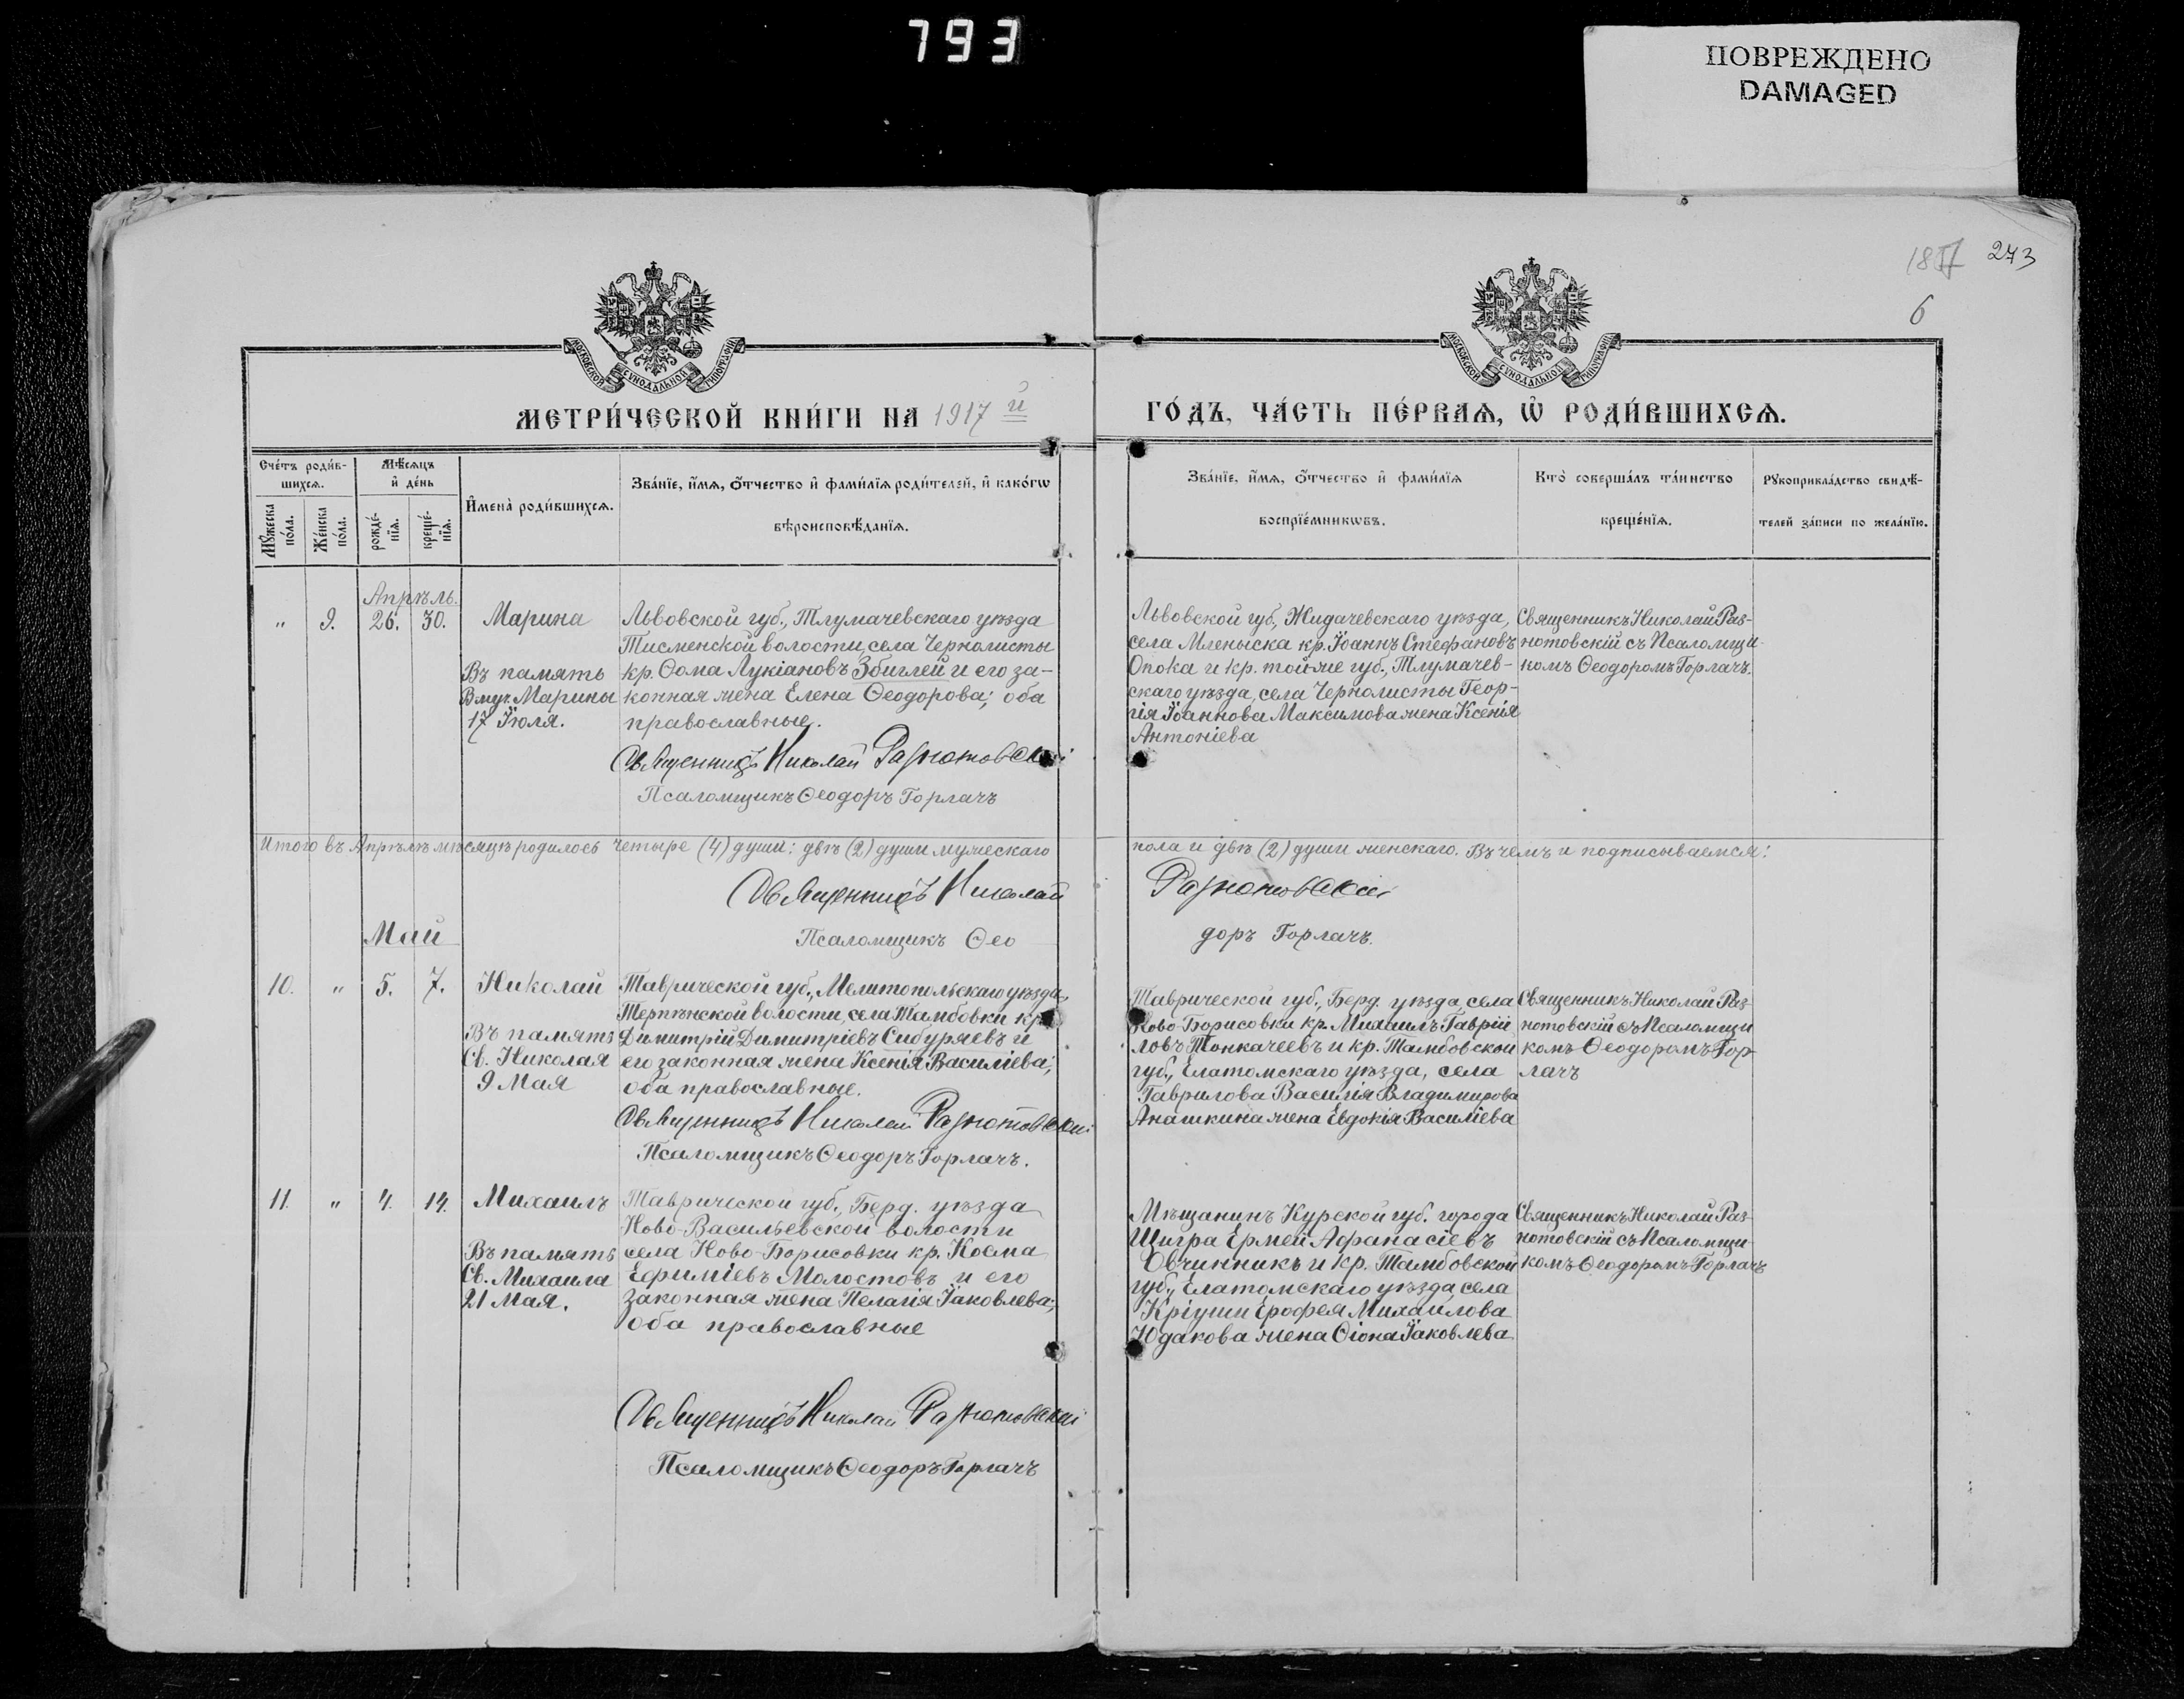 793
ПОВРЕЖДЕНО
DAMAGED
273
6
МОСКОВСКОЙ СѴНОДАЛЬНОЙ ТИПОГРАФІИ
МОСКОВСКОЙ СѴНОДАЛЬНОЙ ТИПОГРАФІИ
МЕТРИ́ЧЕСКОЙ КНИ́ГИ НА 1917 й
ГО́ДЪ, ЧА́СТЬ ПЕ́РВАѦ, Ѡ҆ РОДИ́ВШИХСѦ.
Сче́тъ роди́в-
шихсѧ.
Мѣ́сѧцъ
и҆ де́нь
Мꙋ́жеска
по́ла.
Же́нска
по́ла.
рожде́-
нїѧ.
креще́-
нїѧ.
И҆мена̀ роди́вшихсѧ.
Зва́нїе, и҆́мѧ, ѻ҆́тчество и҆ фами́лїѧ роди́телей, и҆ како́гѡ
вѣроисповѣ́данїѧ.
Зва́нїе, и҆́мѧ, ѻ҆́тчество и҆ фами́лїѧ
воспрїе́мникѡвъ.
Кто̀ соверша́лъ та́инство
креще́нїѧ.
Рꙋкоприкла́дство свидѣ́-
телей за́писи по жела́нїю.
Апрѣль.
" 9. 26. 30. Марина
Въ память
Вмуч. Марины
17 Іюля.
Львовской губ., Тлумачевскаго уѣзда
Тисменской волости, села Чернолисты
кр. Ѳома Лукіановъ Збиглей и его за-
конная жена Елена Ѳеодорова; оба
православные.
Священникъ Николай Разнотовскій
Псаломщикъ Ѳеодоръ Горлачъ
Львовской губ., Жидачевскаго уѣзда,
села Мленыска кр. Іоаннъ Стефановъ
Опока и кр. той-же губ., Тлумачев-
скаго уѣзда, села Чернолисты Геор-
гія Іоаннова Максимова жена Ксенія
Антоніева
Священникъ Николай Раз-
нотовскій съ Псаломщи-
комъ Ѳеодоромъ Горлачъ.
Итого въ Апрѣлѣ мѣсяцѣ родилось четыре (4) души: двѣ (2) души мужескаго
пола и двѣ (2) души женскаго. Въ чемъ и подписываемся:
Священникъ Николай
Разнотовскій
Псаломщикъ Ѳео
доръ Горлачъ.
Май
10. " 5. 7. Николай
Въ память
Св. Николая
9 Мая
Таврической губ., Мелитопольскаго уѣзда,
Терпѣнской волости, села Тамбовки кр.
Димитрій Димитріевъ Сибуряевъ и
его законная жена Ксенія Василіева;
оба православные.
Священникъ Николай Разнотовскій
Псаломщикъ Ѳеодоръ Горлачъ.
Таврической губ., Берд. уѣзда, села
Ново-Борисовки кр. Михаилъ Гаврiи
ловъ Тонкачеевъ и кр. Тамбовской
губ., Елатомскаго уѣзда, села
Гаврилова Василія Владимирова
Анашкина жена Евдокія Василіева
Священникъ Николай Раз-
нотовскій съ Псаломщи
комъ Ѳеодоромъ Гор-
лачъ
11. " 4. 14. Михаилъ
Въ память
Св. Михаила
21 Мая.
Таврической губ., Берд. уѣзда
Ново-Васильевской волости
села Ново-Борисовки кр. Косма
Ефиміевъ Молостовъ и его
законная жена Пелагія Іаковлева;
оба православные
Священникъ Николай Разнотовскій
Псаломщикъ Ѳеодоръ Горлачъ
Мѣщанинъ Курской губ. города
Щигра Ермей Афанасіевъ
Овчинникъ и кр. Тамбовской
губ., Елатомскаго уѣзда, села
Кріуши Ерофея Михаилова
Юдакова жена Ѳіона Іаковлева
Священникъ Николай Раз-
нотовскій съ Псаломщи-
комъ Ѳеодоромъ Горлачъ